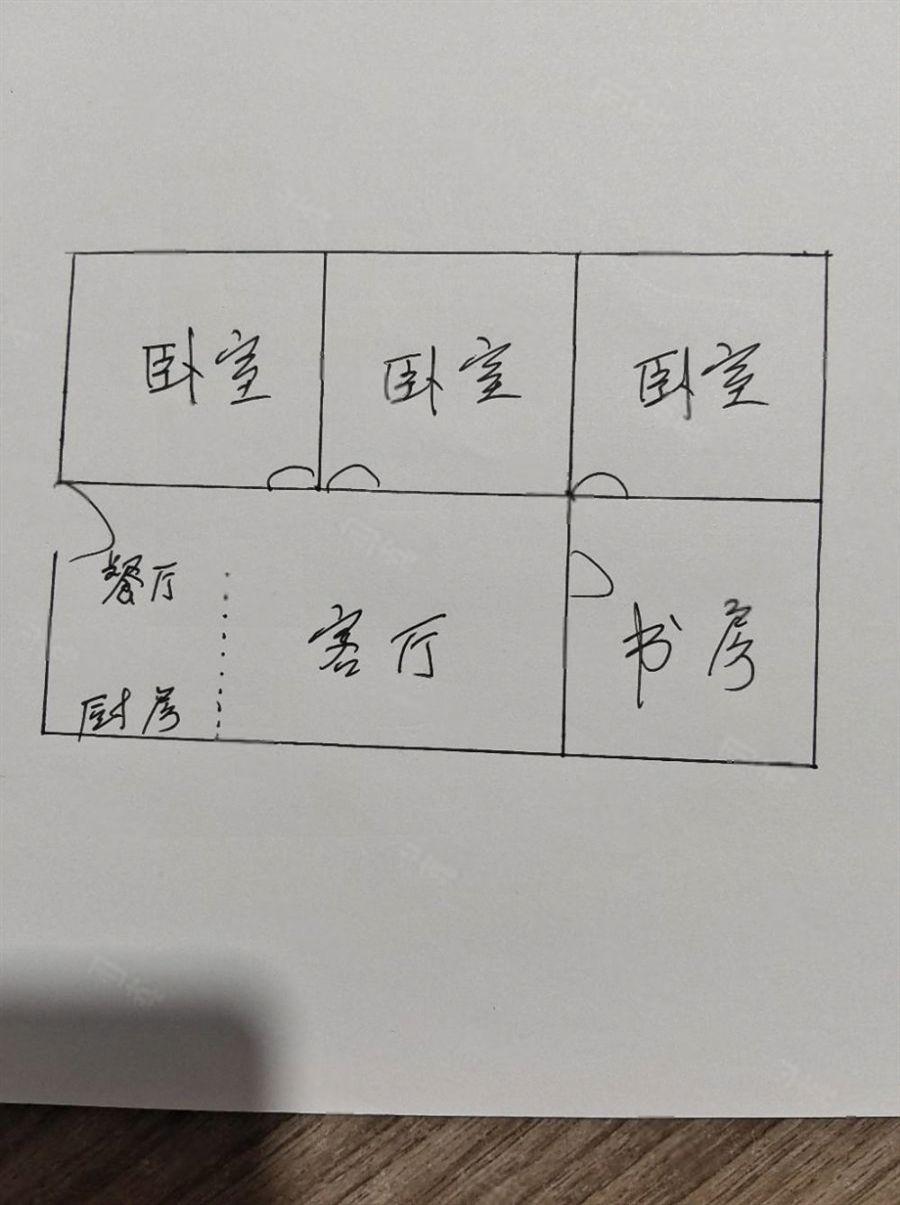 卧室 卧室 卧室
餐厅
客厅 书房
厨房